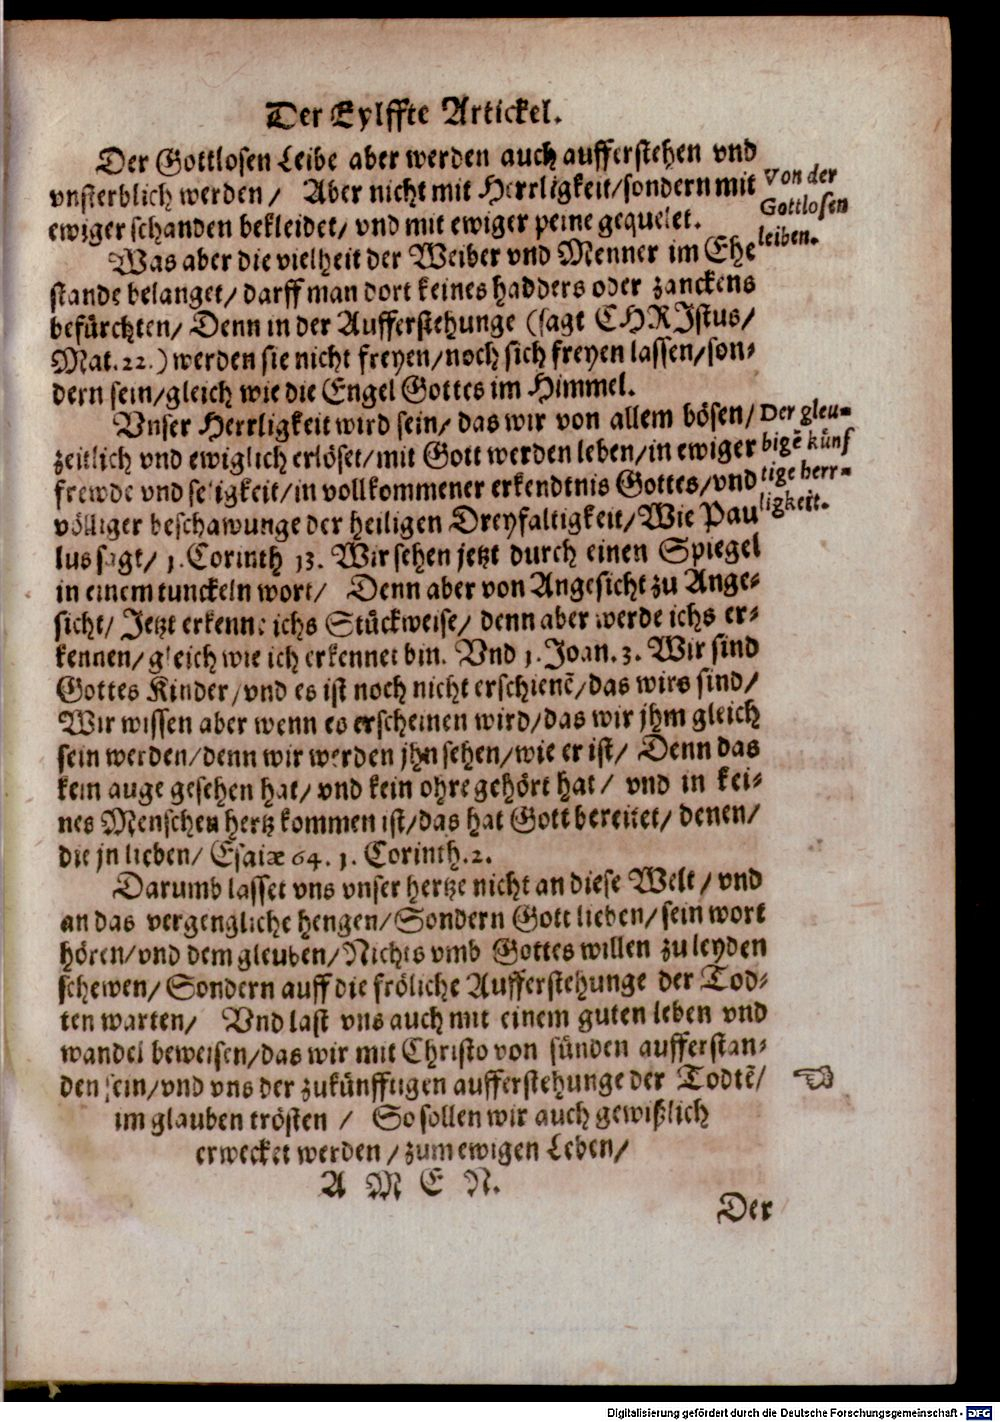 Der Eylffte Artickel.
Der Gottlosen Leibe aber werden auch aufferstehen vnd
vnsterblich werden / Aber nicht mit Herrligkeit/sondern mit
ewiger schanden bekleidet/ vnd mit ewiger peine gequelet.
Von der
Gottlosen
leiben.
Was aber die vielheit der Weiber vnd Menner im Ehe
stande belanget/ darff man dort keines hadders oder zanckens
befürchten/ Denn in der Aufferstehunge (sagt CHRIstus/
Mat. 22.) werden sie nicht freyen/noch sich freyen lassen/son-
dern sein/gleich wie die Engel Gottes im Himmel.
Vnser Herrligkeit wird sein/ das wir von allem bösen/
zeitlich vnd ewiglich erlöset/mit Gott werden leben/in ewiger
frewde vnd seligkeit/in vollkommener erkendtnis Gottes/vnd
völliger beschawunge der heiligen Dreyfaltigkeit/Wie Pau
Der gleu-
bigē künf
tige herr-
ligkeit.
lus sagt/ 1. Corinth 13. Wir sehen jetzt durch einen Spiegel
in einem tunckeln wort/ Denn aber von Angesicht zu Ange-
sicht/ Jetzt erkenne ichs Stückweise/ denn aber werde ichs er-
kennen/gleich wie ich erkennet bin. Vnd 1. Joan. 3. Wir sind
Gottes Kinder/vnd es ist noch nicht erschienē/das wirs sind/
Wir wissen aber wenn es erscheinen wird/das wir jhm gleich
sein werden/denn wir werden jhn sehen/wie er ist/ Denn das
kein auge gesehen hat/ vnd kein ohre gehört hat/ vnd in kei-
nes Menschen hertz kommen ist/das hat Gott bereitet/ denen/
die jn lieben/ Esaiæ 64. 1. Corinth. 2.
Darumb lasset vns vnser hertze nicht an diese Welt/ vnd
an das vergengliche hengen/Sondern Gott lieben/sein wort
hören/vnd dem gleuben/Nichts vmb Gottes willen zu leyden
schewen/Sondern auff die fröliche Aufferstehunge der Tod-
ten warten/ Vnd last vns auch mit einem guten leben vnd
wandel beweisen/das wir mit Christo von sünden aufferstan-
den sein/vnd vns der zukünfftigen aufferstehunge der Todtē/
☜
im glauben trösten / So sollen wir auch gewißlich
erwecket werden / zum ewigen Leben/
A M E N.
Der
Digitalisierung gefördert durch die Deutsche Forschungsgemeinschaft - DFG